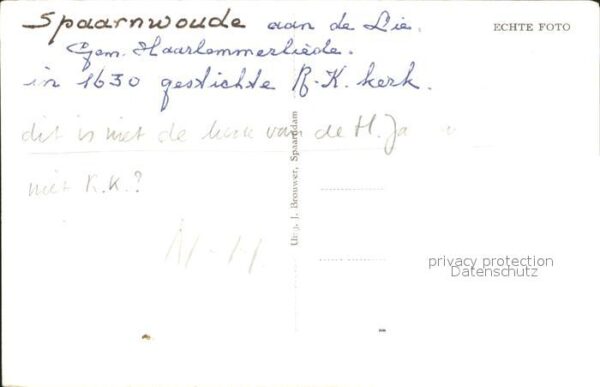 Spaarnwoude aan de Lie.
ECHTE FOTO
Gem. Haarlemmerliede.
in 1630 gestichte R.K. kerk.
dit is niet de kerk van de H. Ja
niet R.K.?
Uitg. J. Brouwer, Spaarndam
privacy protection
Datenschutz